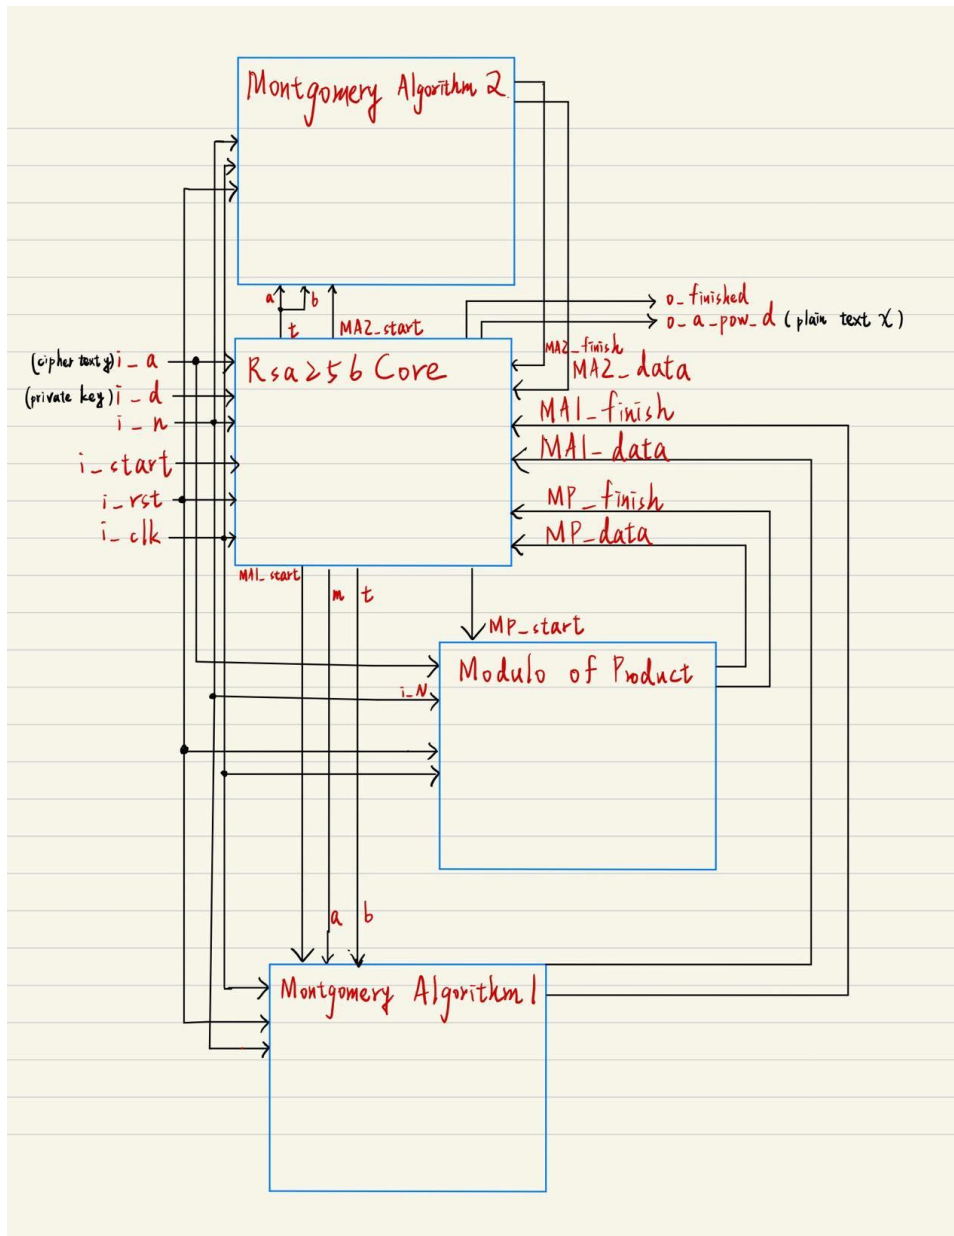 Montgomery Algorithm 2
a
b
t
MA2_start
o_finished
o_a_pow_d (plain text x)
(cipher text y) i_a
(private key) i_d
i_n
i_start
i_rst
i_clk
Rsa256 Core
MA2_finish
MA2_data
MA1_finish
MA1_data
MP_finish
MP_data
MA1_start
m
t
MP_start
Modulo of Product
i_N
a
b
Montgomery Algorithm 1